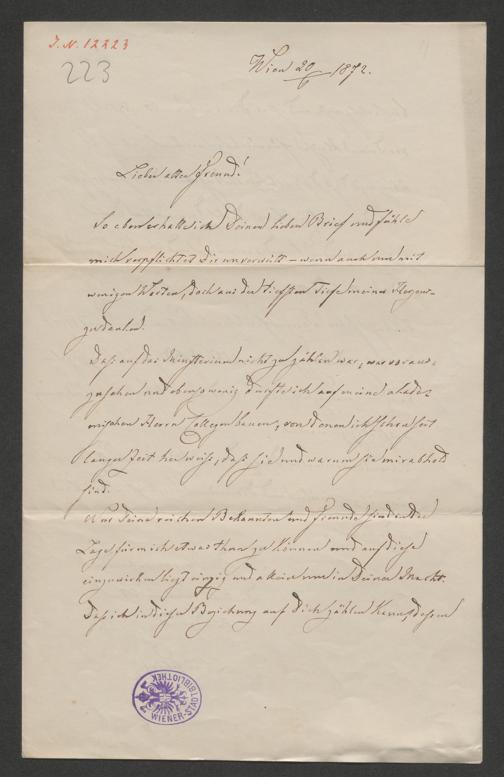 J. N. 12223
223
Wien 20/6 1872.
Lieber alter Freund!
So eben erhalte ich Deinen lieben Brief und fühle
mich verpflichtet Dir unverweilt – wenn auch nur mit
wenigen Worten, doch aus der tiefsten Tiefe meines Herzens
zu danken.
Daß auf das Ministerium nicht zu zählen war, war voraus-
zusehen und ebensowenig durfte ich auf meine akade-
mischen Herrn Collegen bauen, von denen ich schon seit
langer Zeit her weiß, daß sie und warum sie mir abhold
sind.
Nur Deine reichen Bekannten und Freunde sind in der
Lage für mich etwas thun zu können und auf diese
einzuwirken liegt einzig und allein nur in Deiner Macht.
Daß ich in dieser Beziehung auf Dich zählen kann, dessen
WIENER-STADTBIBLIOTHEK